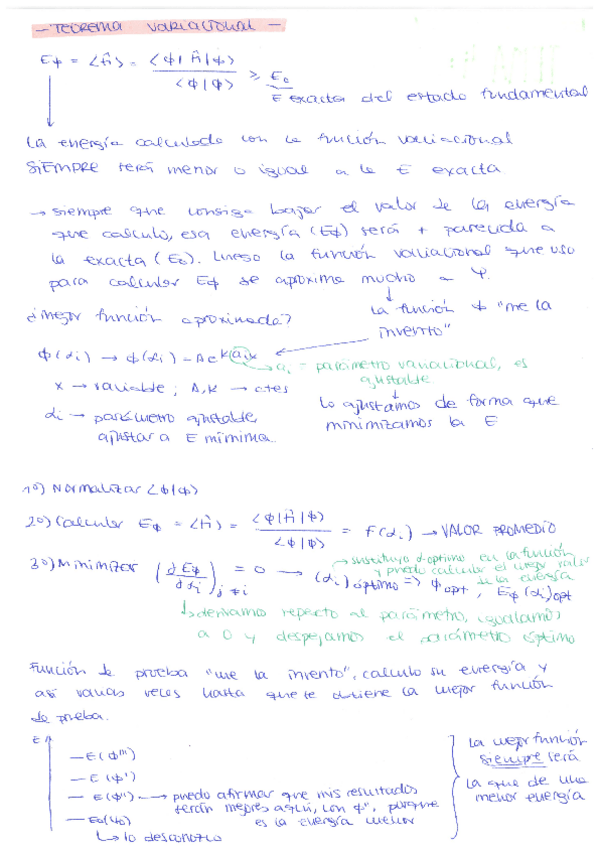 - TEOREMA VARIACIONAL -
Eϕ = <Ĥ> = <ϕ|Ĥ|ϕ> / <ϕ|ϕ> ≥ E₀
E exacta del estado fundamental
La energía calculada con la función variacional
SIEMPRE será menor o igual a la E exacta.
→ siempre que consiga bajar el valor de la energía
que calculo, esa energía (Eϕ) será + parecida a
la exacta (E₀). Luego la función variacional que uso
para calcular Eϕ se aproxima mucho a Ψ.
¿Mejor función aproximada?
la función ϕ "me la
invento"
ϕ(αi) → ϕ(αi) = A e^k(αi)x
→ αi = parámetro variacional, es
ajustable
x → variable ; A, K → ctes
Lo ajustamos de forma que
minimizamos la E
αi → parámetro ajustable,
ajustar a E mínima.
1º) Normalizar <ϕ|ϕ>
2º) Calcular Eϕ = <Ĥ> = <ϕ|Ĥ|ϕ> / <ϕ|ϕ> = F(αi) → VALOR PROMEDIO
→ sustituyo α óptimo en la función
y puedo calcular el mejor valor
de la energía
3º) Minimizar (∂Eϕ/∂αi)j≠i = 0 → (αi)óptimo => ϕopt, Eϕ(αi)opt
↳ derivamos respecto al parámetro, igualamos
a 0 y despejamos el parámetro óptimo
Función de prueba "me la invento", calculo su energía y
así varias veces hasta que se obtiene la mejor función
de prueba.
E
— E(ϕ''')
— E(ϕ')
— E(ϕ'') → puedo afirmar que mis resultados
serán mejores aquí, con ϕ'', porque
es la energía menor
— E₀(Ψ₀)
↳ lo desconozco
La mejor función
siempre será
la que de una
menor energía